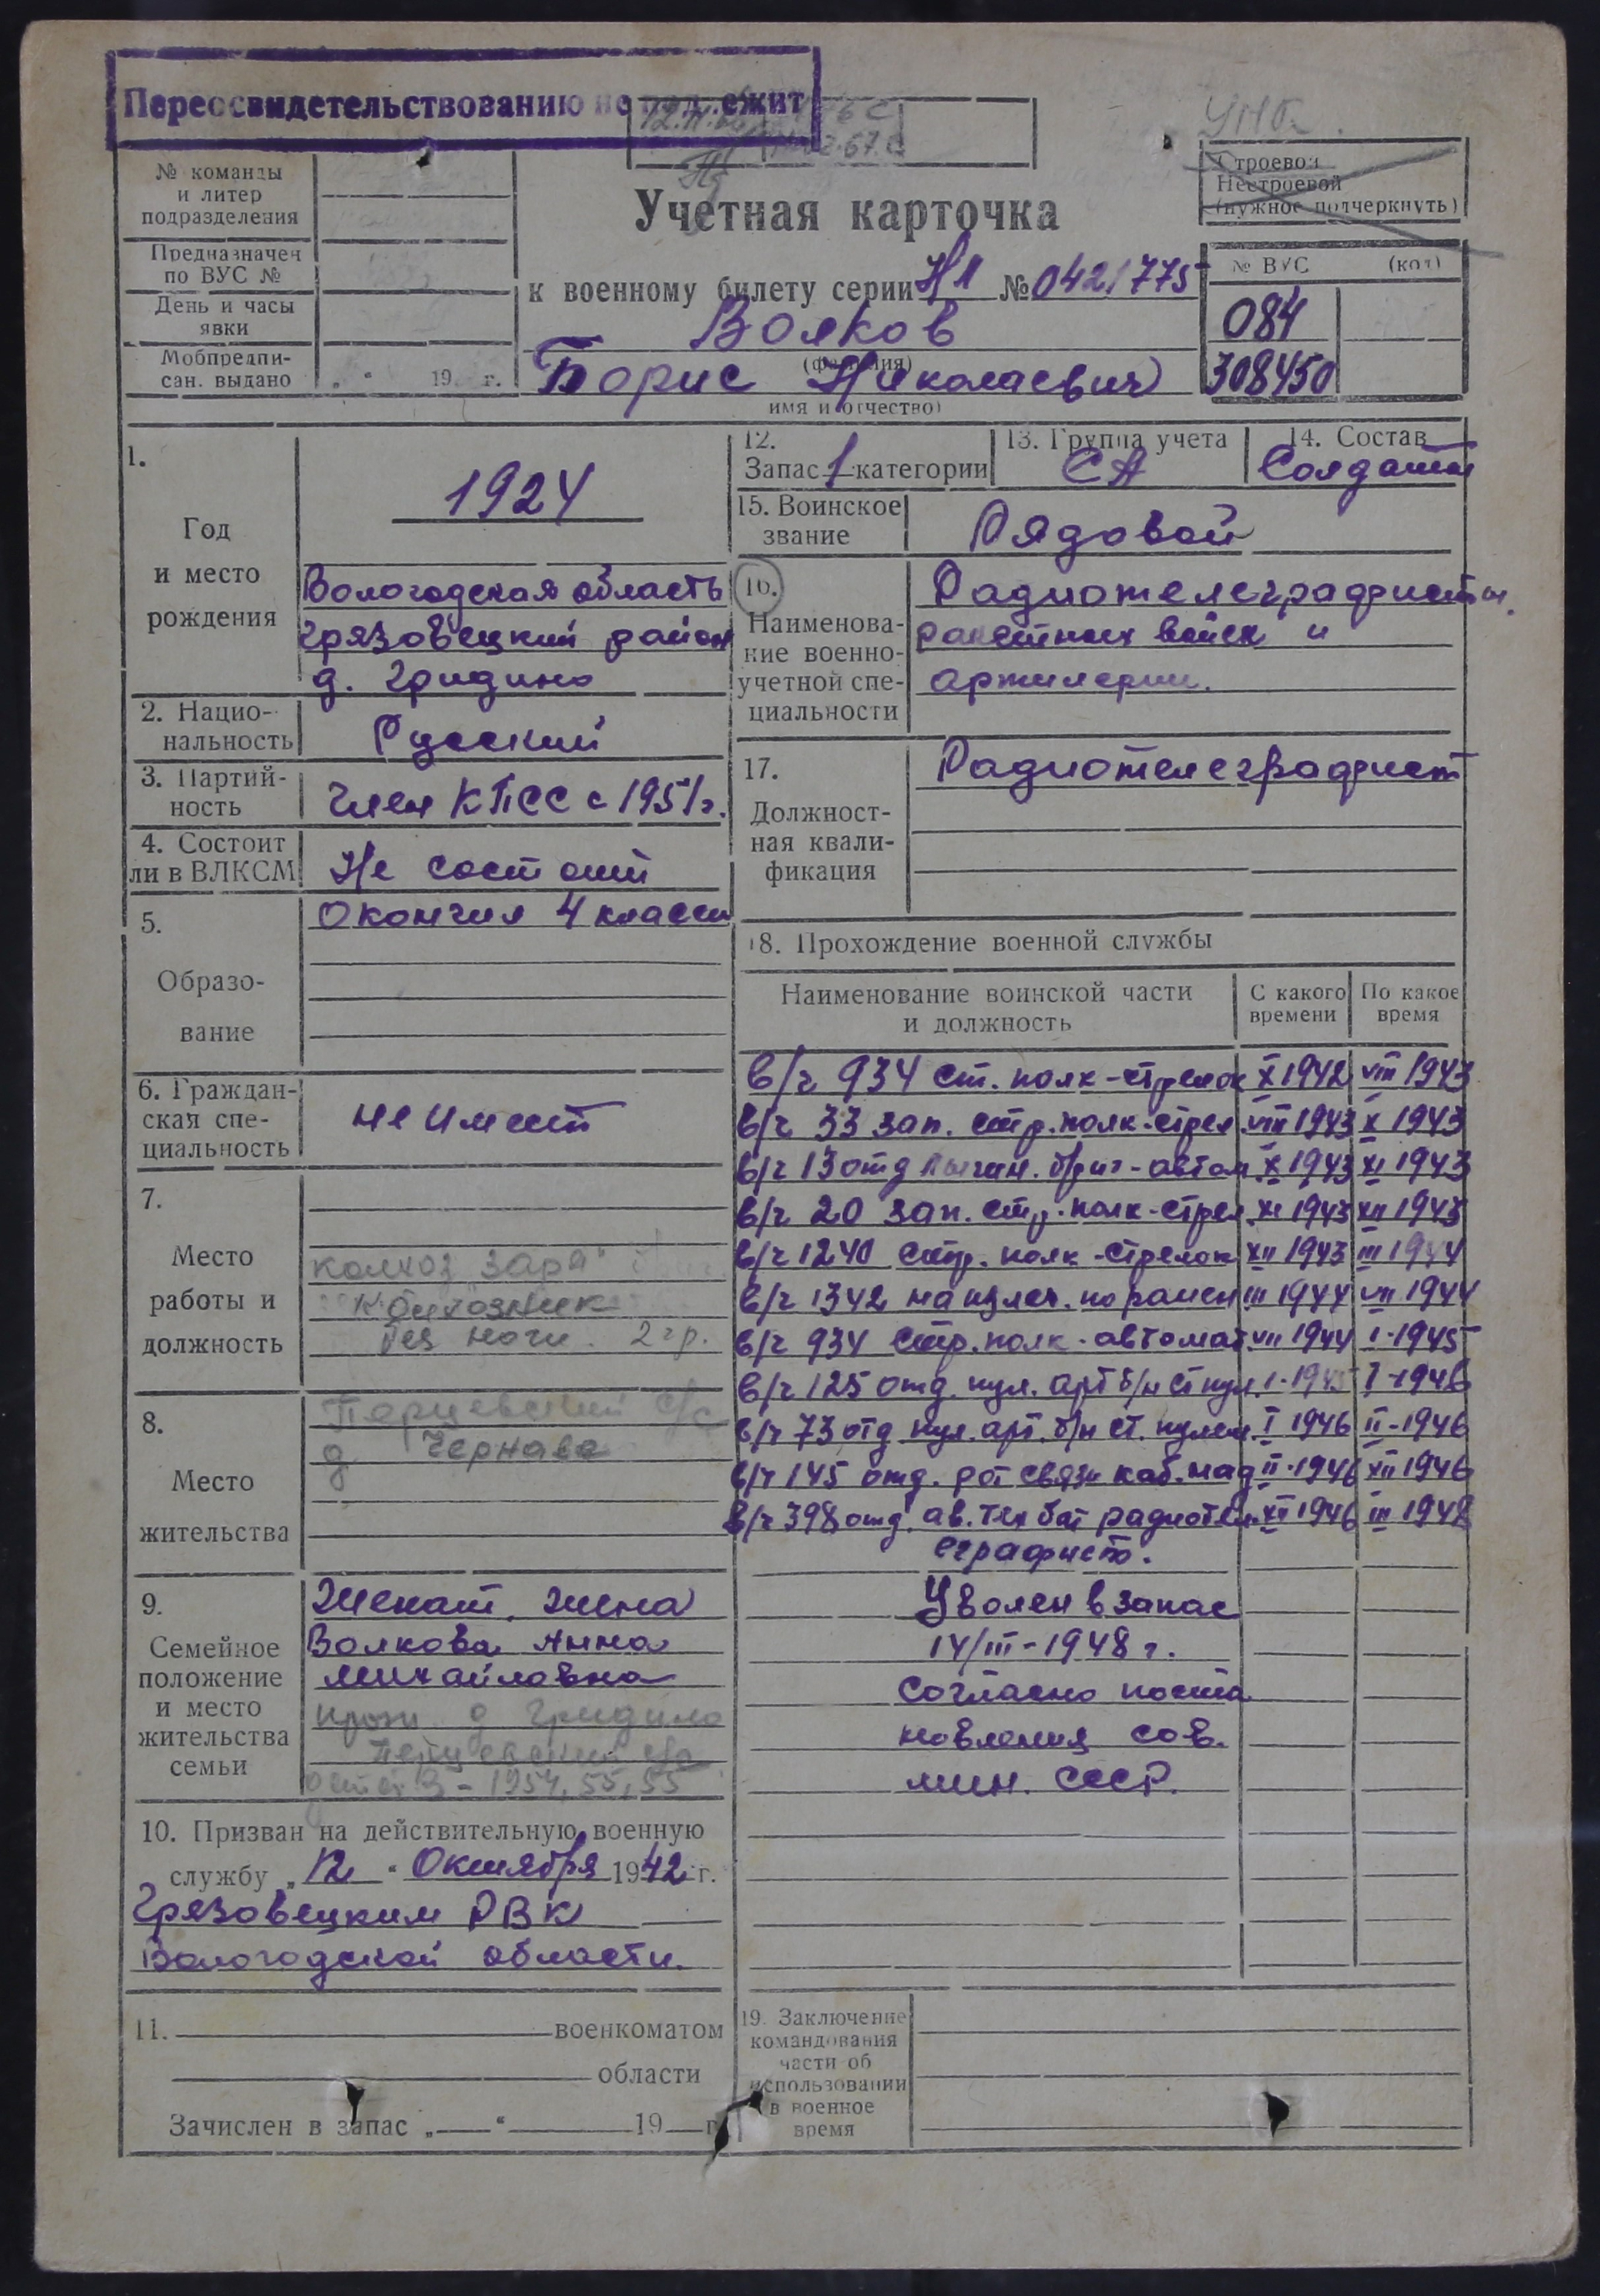 Переосвидетельствованию не подлежит
№ команды
и литер
подразделения
Предназначен
по ВУС №
День и часы
явки
Мобпредпи-
сан. выдано „ “ 19 г.
Строевой
Нестроевой
(нужное подчеркнуть)
Учетная карточка
к военному билету серии НЛ № 0421775
Волков
(фамилия)
Борис Николаевич
имя и отчество)
№ ВУС (код)
084
308450
1.
Год
и место
рождения
1924
Вологодская область
Грязовецкий район
д. Гридино
2. Нацио-
нальность
Русский
3. Партий-
ность
Член КПСС с 1951г.
4. Состоит
ли в ВЛКСМ
Не состоит
5.
Образо-
вание
Окончил 4 класса
6. Граждан-
ская спе-
циальность
не имеет
7.
Место
работы и
должность
колхоз „Заря“
Колхозник
без ноги. 2 гр.
8.
Место
жительства
Перцевский с/с
д Чернава
9.
Семейное
положение
и место
жительства
семьи
Женат, жена
Волкова Анна
Михайловна
прож д Гридино
Перцевский с/с
детей 3 - 1954, 55, 55
10. Призван на действительную военную
службу „ 12 “ Октября 1942 г.
Грязовецким РВК
Вологодской области.
11. военкоматом
области
Зачислен в запас „ “ 19 г.
12.
Запас 1 категории
13. Группа учета
СА
14. Состав
Солдаты
15. Воинское
звание
Рядовой
16.
Наименова-
ние военно-
учетной спе-
циальности
Радиотелеграфисты
ракетных войск и
артилерии.
17.
Должност-
ная квали-
фикация
Радиотелеграфист
18. Прохождение военной службы
Наименование воинской части
и должность
С какого
времени
По какое
время
в/ч 934 ст. полк - стрелок X 1942 VIII 1943
в/ч 33 зап. стр. полк - стрел VIII 1943 X 1943
в/ч 13 отд лыжн. бриг - автом X 1943 XI 1943
в/ч 20 зап. стр. полк - стрел. XI 1943 XII 1943
в/ч 1240 стр. полк - стрелок XII 1943 III 1944
в/ч 1342 на излеч. по ранен III 1944 VII 1944
в/ч 934 стр. полк - автомат VII 1944 I - 1945
в/ч 125 отд. пул. арт б/н ст пул I - 1945 I - 1946
в/ч 73 отд пул. арт. б/н ст. пулем I 1946 II - 1946
в/ч 145 отд. рот связи каб. над II - 1946 XII 1946
в/ч 398 отд. ав. тех бат радиотел XII 1946 III 1948
еграфист.
Уволен в запас
14/III - 1948 г.
согласно поста
новления сов.
мин. СССР.
19. Заключение
командования
части об
использовании
в военное
время